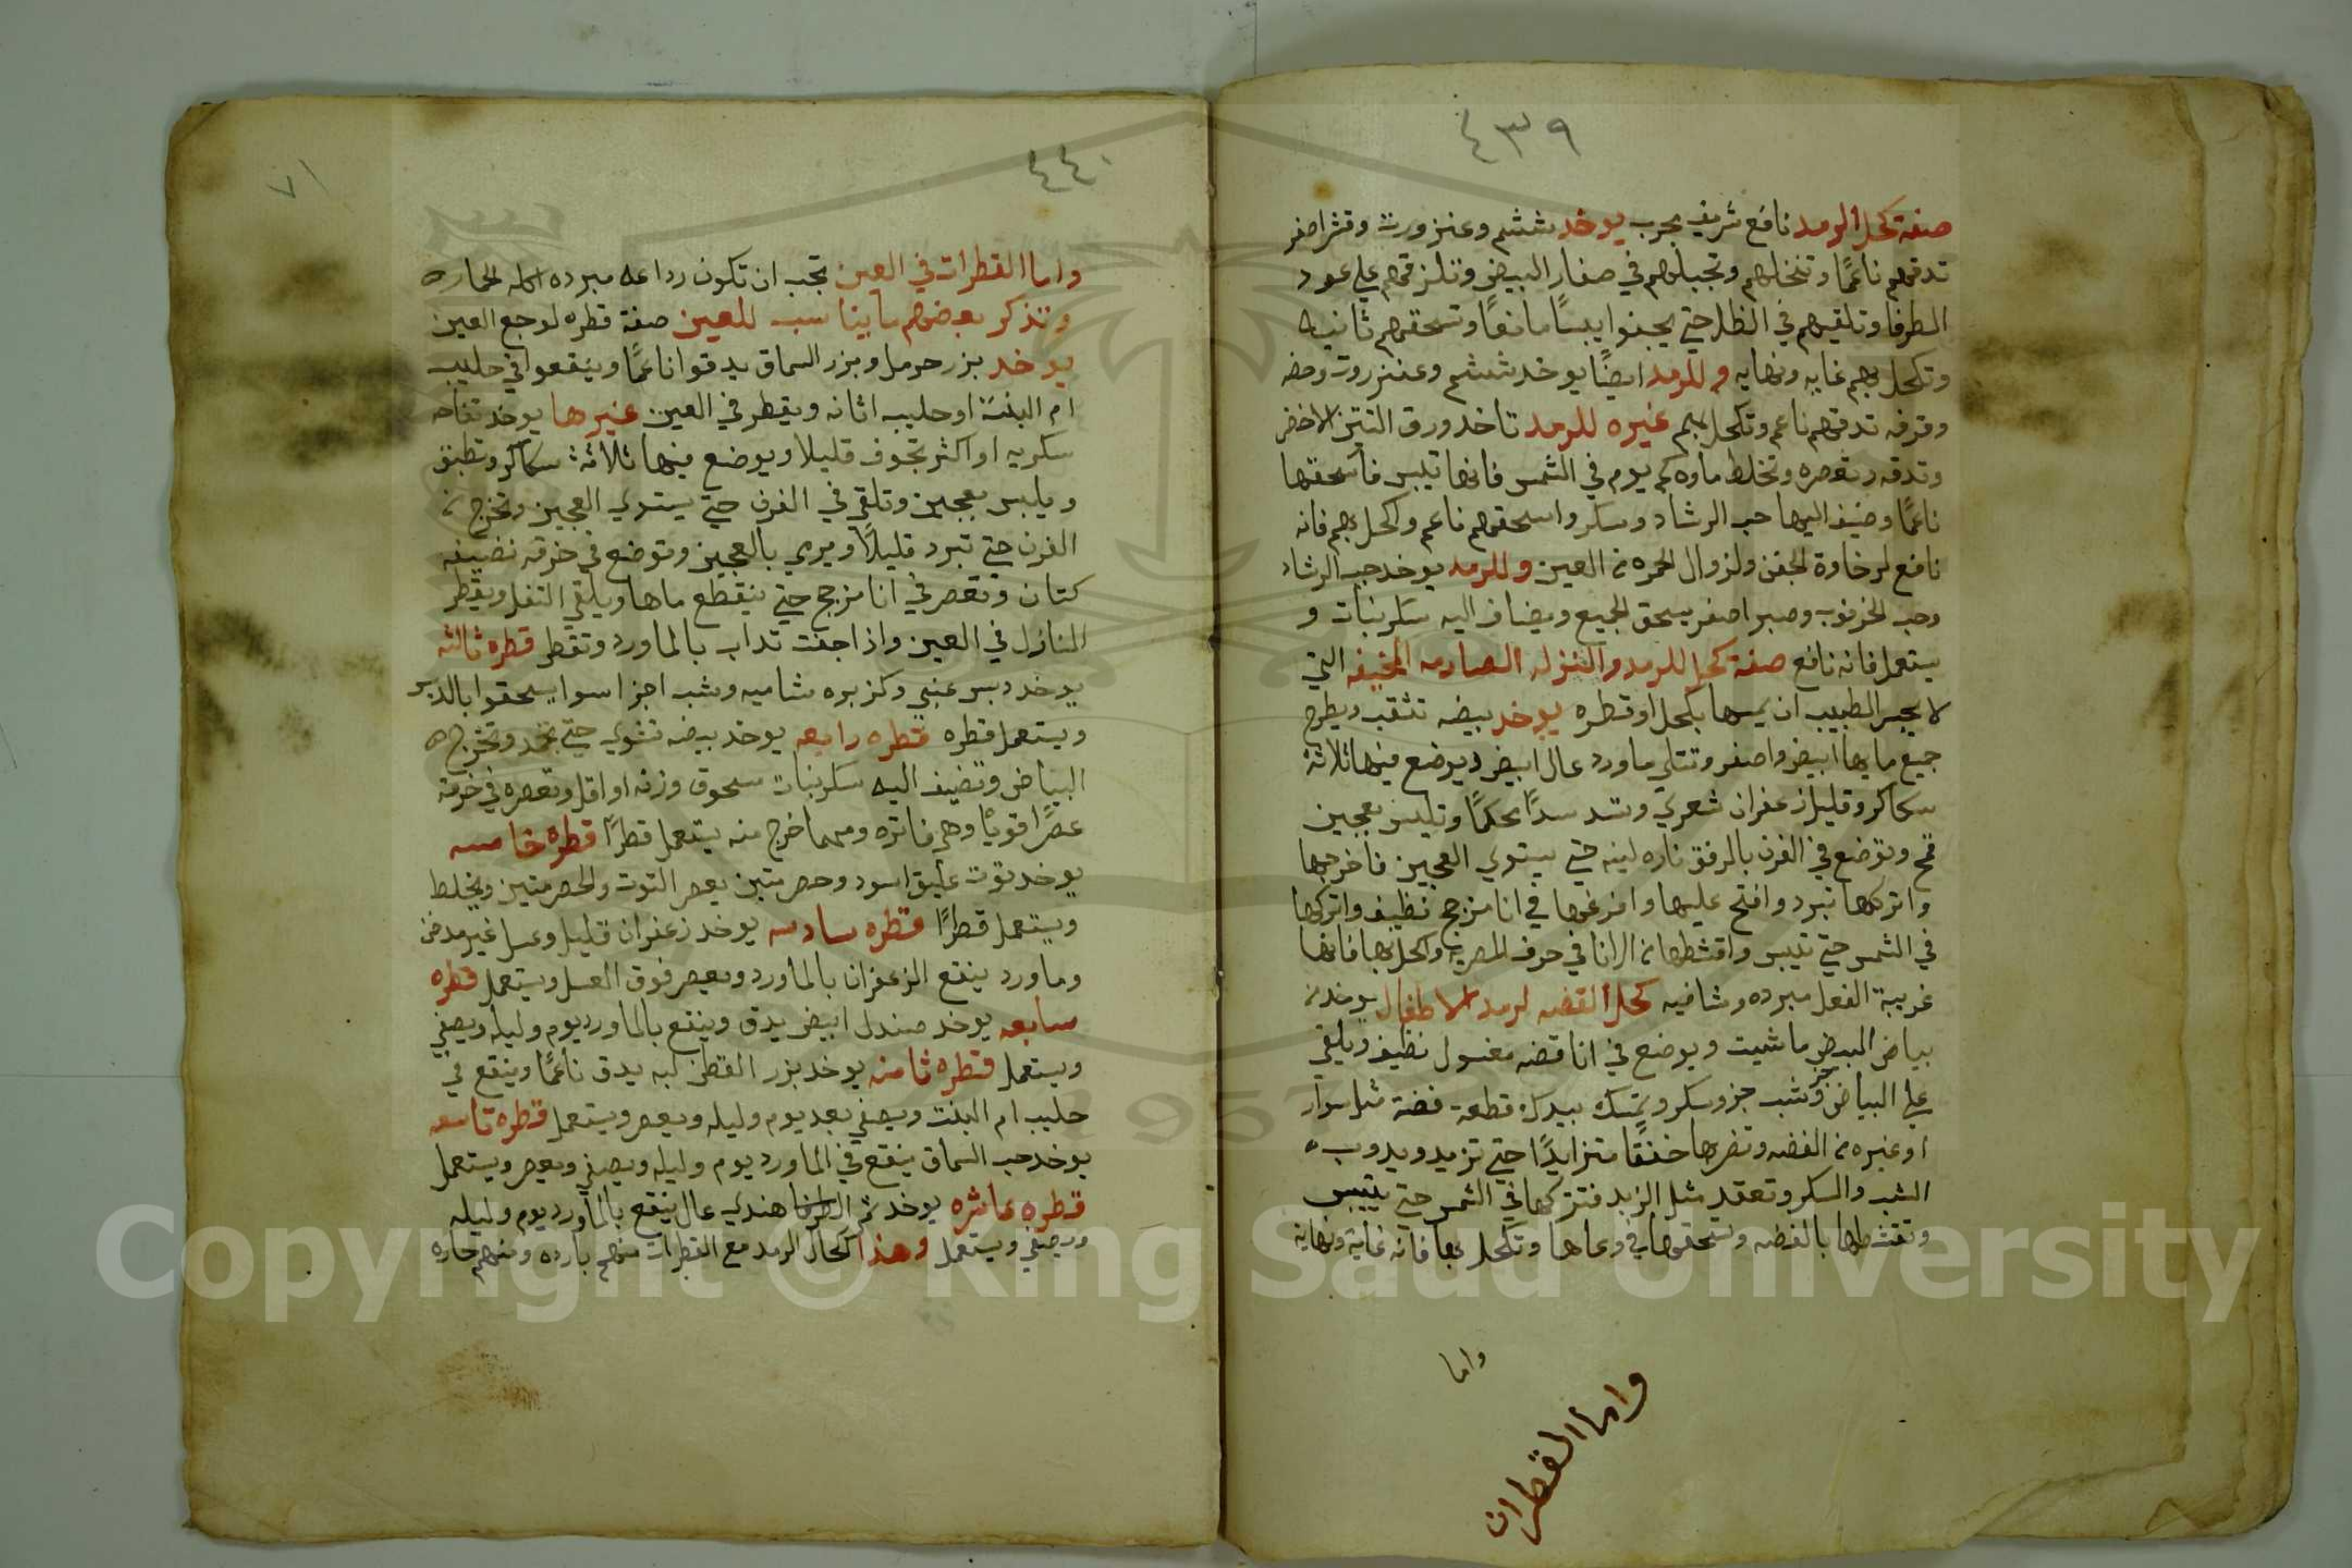 ٤٣٩
صفة كحل الرمد نافع شريف مجرب يوخد ششم وعنزروت وقشر اصفر
تدقهم ناعمًا وتنخلهم وتجبلهم في صفار البيض وتلزقهم علي عود
الطرفا وتلقيهم في الظل حتي يجفوا يبسًا مانعًا وتسحقهم ثانيه
وتكحل بهم غايه ونهايه وللرمد ايضًا يوخد ششم وعنزروت وحضه
وقرفه تدقهم ناعم وتكحل بهم غيره للرمد تاخد ورق التيتن الاخضر
وتدقه وتعصره وتخلط ماوه كم يوم في الشمس فانها تيبس فاسحقها
ناعمًا وضيف اليها حب الرشاد وسكر واسحقهم ناعم واكحل بهم فانه
نافع لرخاوة الجفن ولزوال الحمره من العين وللرمد يوخد حب الرشاد
وحب الخرنوب وصبر اصفر يسحق الجميع ويضاف اليه سكر نبات و
يستعمل فانه نافع صفة كحل للرمد والنزله الصارمه المخيفه التي
لا يجسر الطبيب ان يمسها بكحل او قطره يوخد بيضه تثقب ويطرح
جميع مابها ابيض واصفر وتتلي ماورد عال ابيض ويوضع فيها ثلاثة
سكاكر وقليل زعفران شعري وتسد سدًا محكمًا وتلبس بعجين
قمح وتوضع في الفرن بالرفق ناره لينه حتي يستوي العجين فاخرجها
واتركها تبرد وافتح عليها وافرغها في انا مزجج نظيف واتركها
في الشمس حتي تيبس واقشطها من الانا في حرف المصريه واكحل بها فانها
غريبة الفعل مبرده وشافيه كحل الفضه لرمد الاطفال يوخد من
بياض البيض ماشيت ويوضع في انا فضه مغسول نظيف ويلقي
علي البياض جزو شب جزو سكر وتمسك بيدك قطعة فضة مثل سوار
او غيره من الفضه وتضربها خفقًا متزايدًا حتي تزيد ويدوب
الشب والسكر وتعقد مثل الزبد فتتركها في الشمس حتي تيبس
وتقشطها بالفضه وتسحقها في وعاها وتكحل بها فانه غاية ونهاية
واما
واما القطرات
٤٤٠
٧١
واما القطرات في العين تجب ان تكون رداعه مبرده الحاره
ونذكر بعضهم ما يناسب للعين صفة قطره لوجع العين
يوخد بزر حرمل وبزر السماق يدقوا ناعمًا وينقعوا في حليب
ام البنت او حليب اتانه ويقطر في العين غيرها يوخد تفاحه
سكريه او اكثر تجوف قليلا ويوضع فيها ثلاثة سكاكر وتطبق
ويلبس بعجين وتلقي في الفرن حتي يستوي العجين وتخرج من
الفرن حتي تبرد قليلاً ويرمي بالعجين وتوضع في خرقه نضيفه
كتان وتعصر في انا مزجج حتي ينقطع ماها ويلقي التفل ويقطر
النازل في العين واذا جفت تداب بالماورد وتقطر قطره ثالثه
يوخد دبس عنبي وكزبره شاميه وشب اجزا سوا يسحقوا بالدبس
ويستعمل قطره قطره رابعه يوخد بيضه تشوي حتي تجمد وتخرج
البياض وتضيف اليه سكر نبات مسحوق وزنه او اقل وتعصره في خرقة
عصرًا قويًا وهي فاتره ومهما خرج منه يستعمل قطرًا قطره خامسه
يوخد توت عليق اسود وحصرمتين يعصر التوت والحصرمتين ويخلط
ويستعمل قطرًا قطره سادسه يوخد زعفران قليل وعسل غير مدخن
وماورد ينقع الزعفران بالماورد ويعصر فوق العسل ويستعمل قطره
سابعه يوخد صندل ابيض يدق وينقع بالماورد يوم وليله ويصفي
ويستعمل قطره ثامنه يوخد بزر القطن لبه يدق ناعمًا وينقع في
حليب ام البنت ويصفي بعد يوم وليله ويعصر ويستعمل قطره تاسعه
يوخد حب السماق ينقع في الماورد يوم وليله ويصفي ويعصر ويستعمل
قطره عاشره يوخد تمر هندي عال ينقع بالماورد يوم وليله
ويصفي ويستعمل وهذا اكحال الرمد مع القطرات منهم بارده ومنهم حاره
Copyright © King Saud University
1957